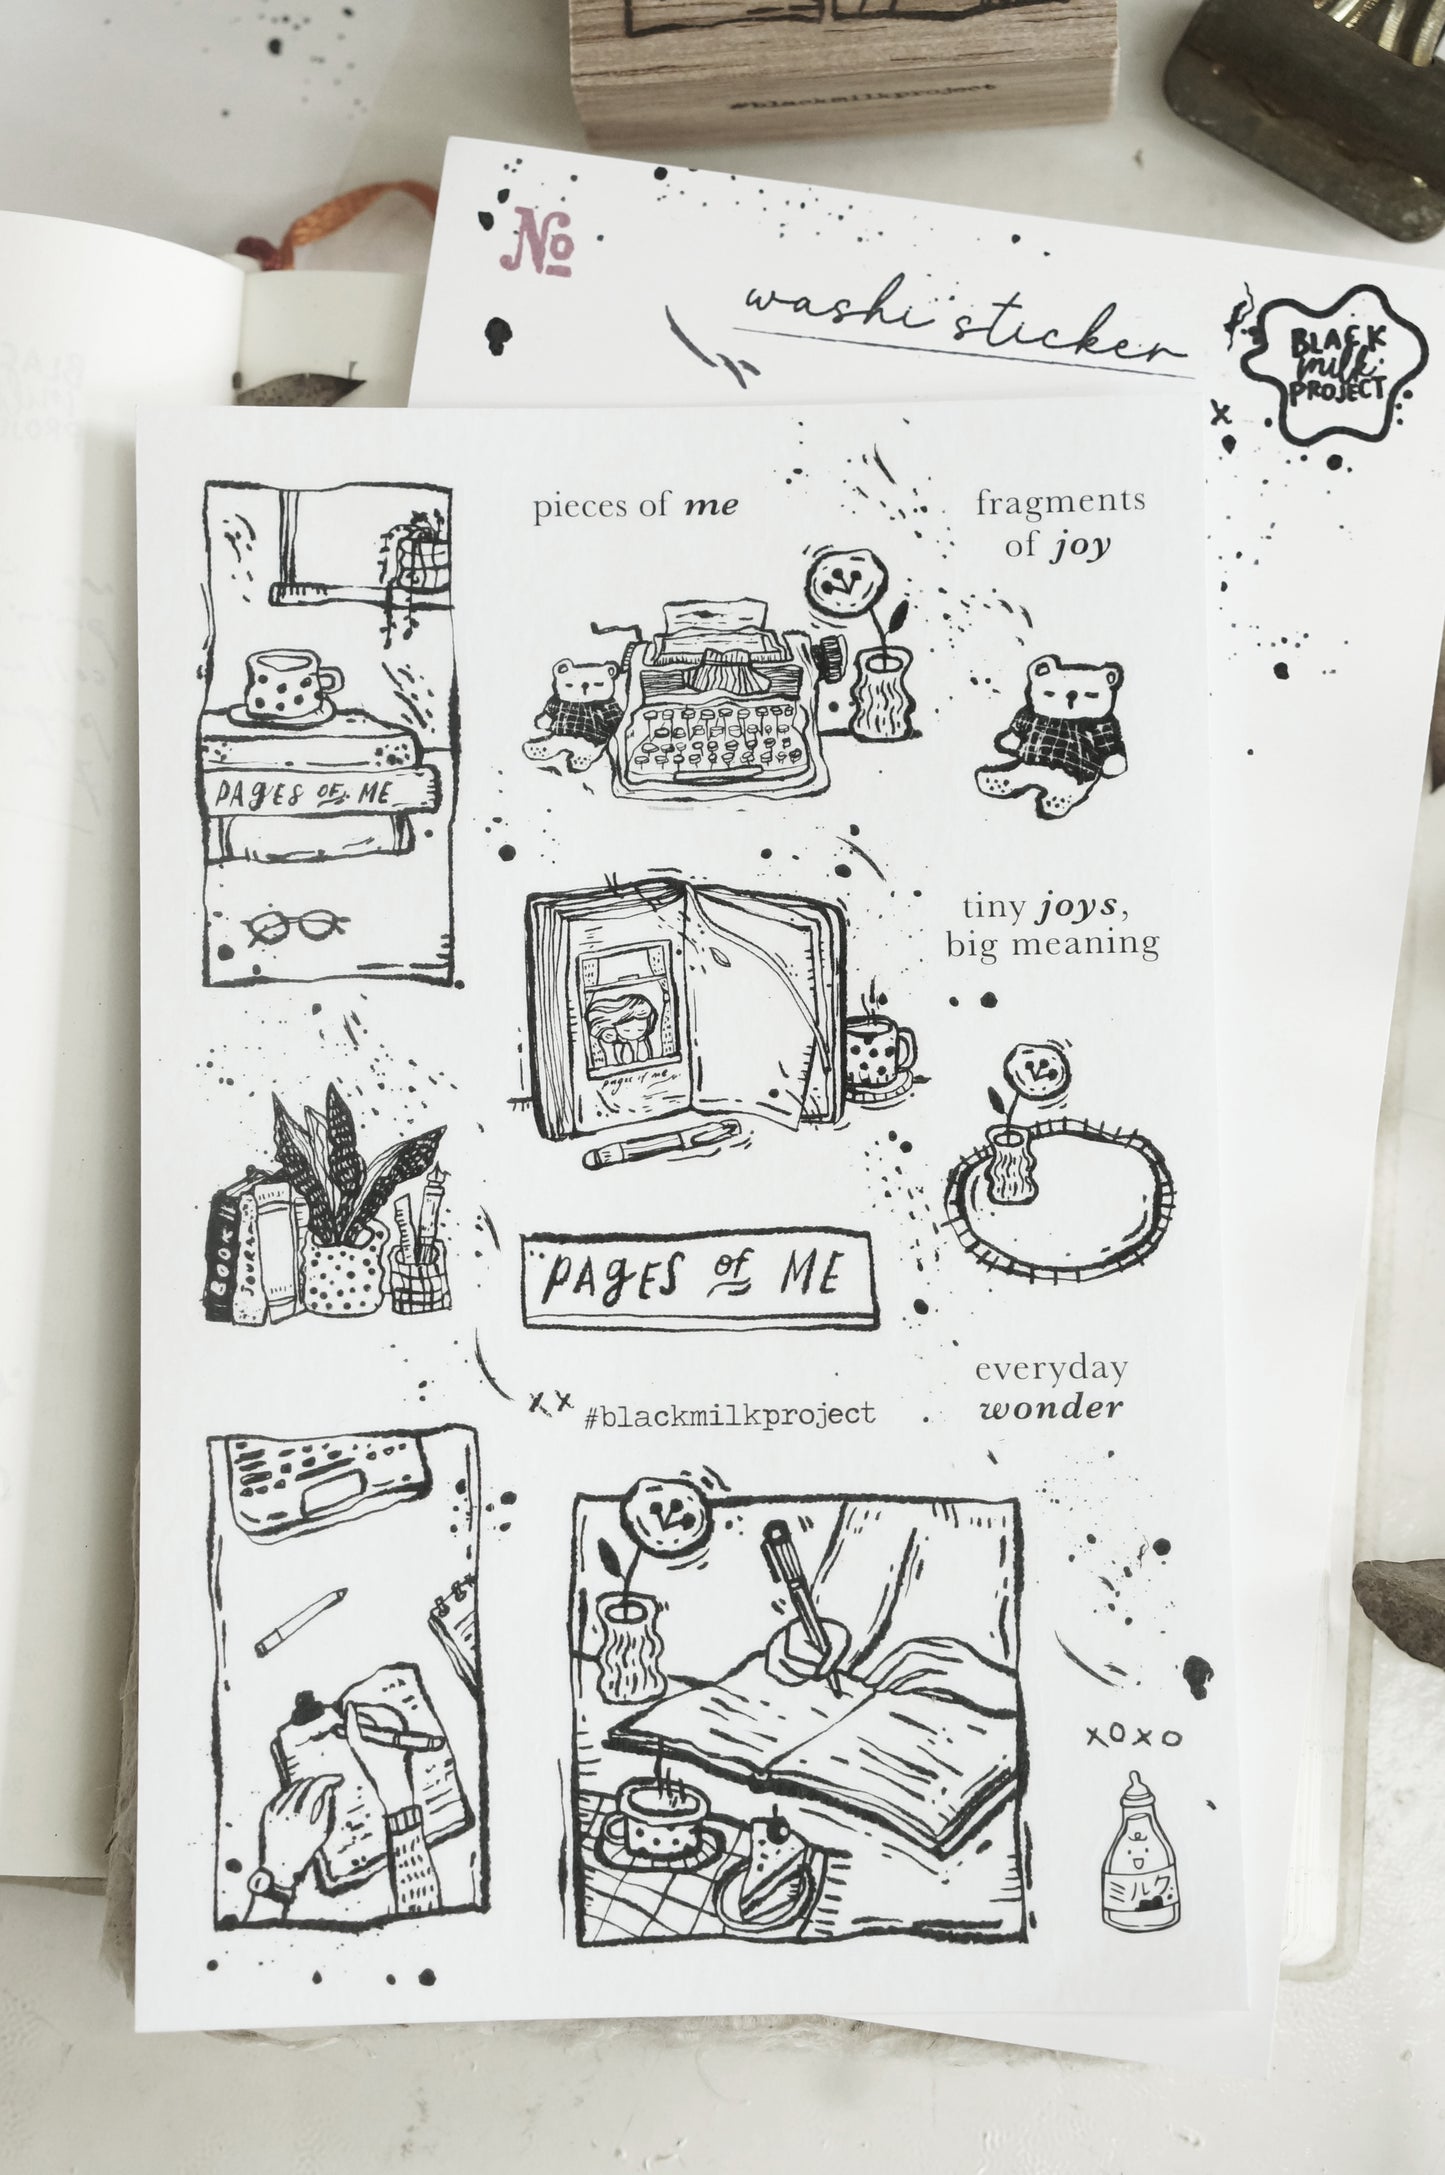 #blackmilkproject
No
washi sticker
BLACK
milk
PROJECT
pieces of me
fragments
of joy
PAGES OF ME
tiny joys,
big meaning
pages of me
BOOK
JOURNAL
PAGES of ME
everyday
wonder
xx #blackmilkproject
xoxo
ミルク